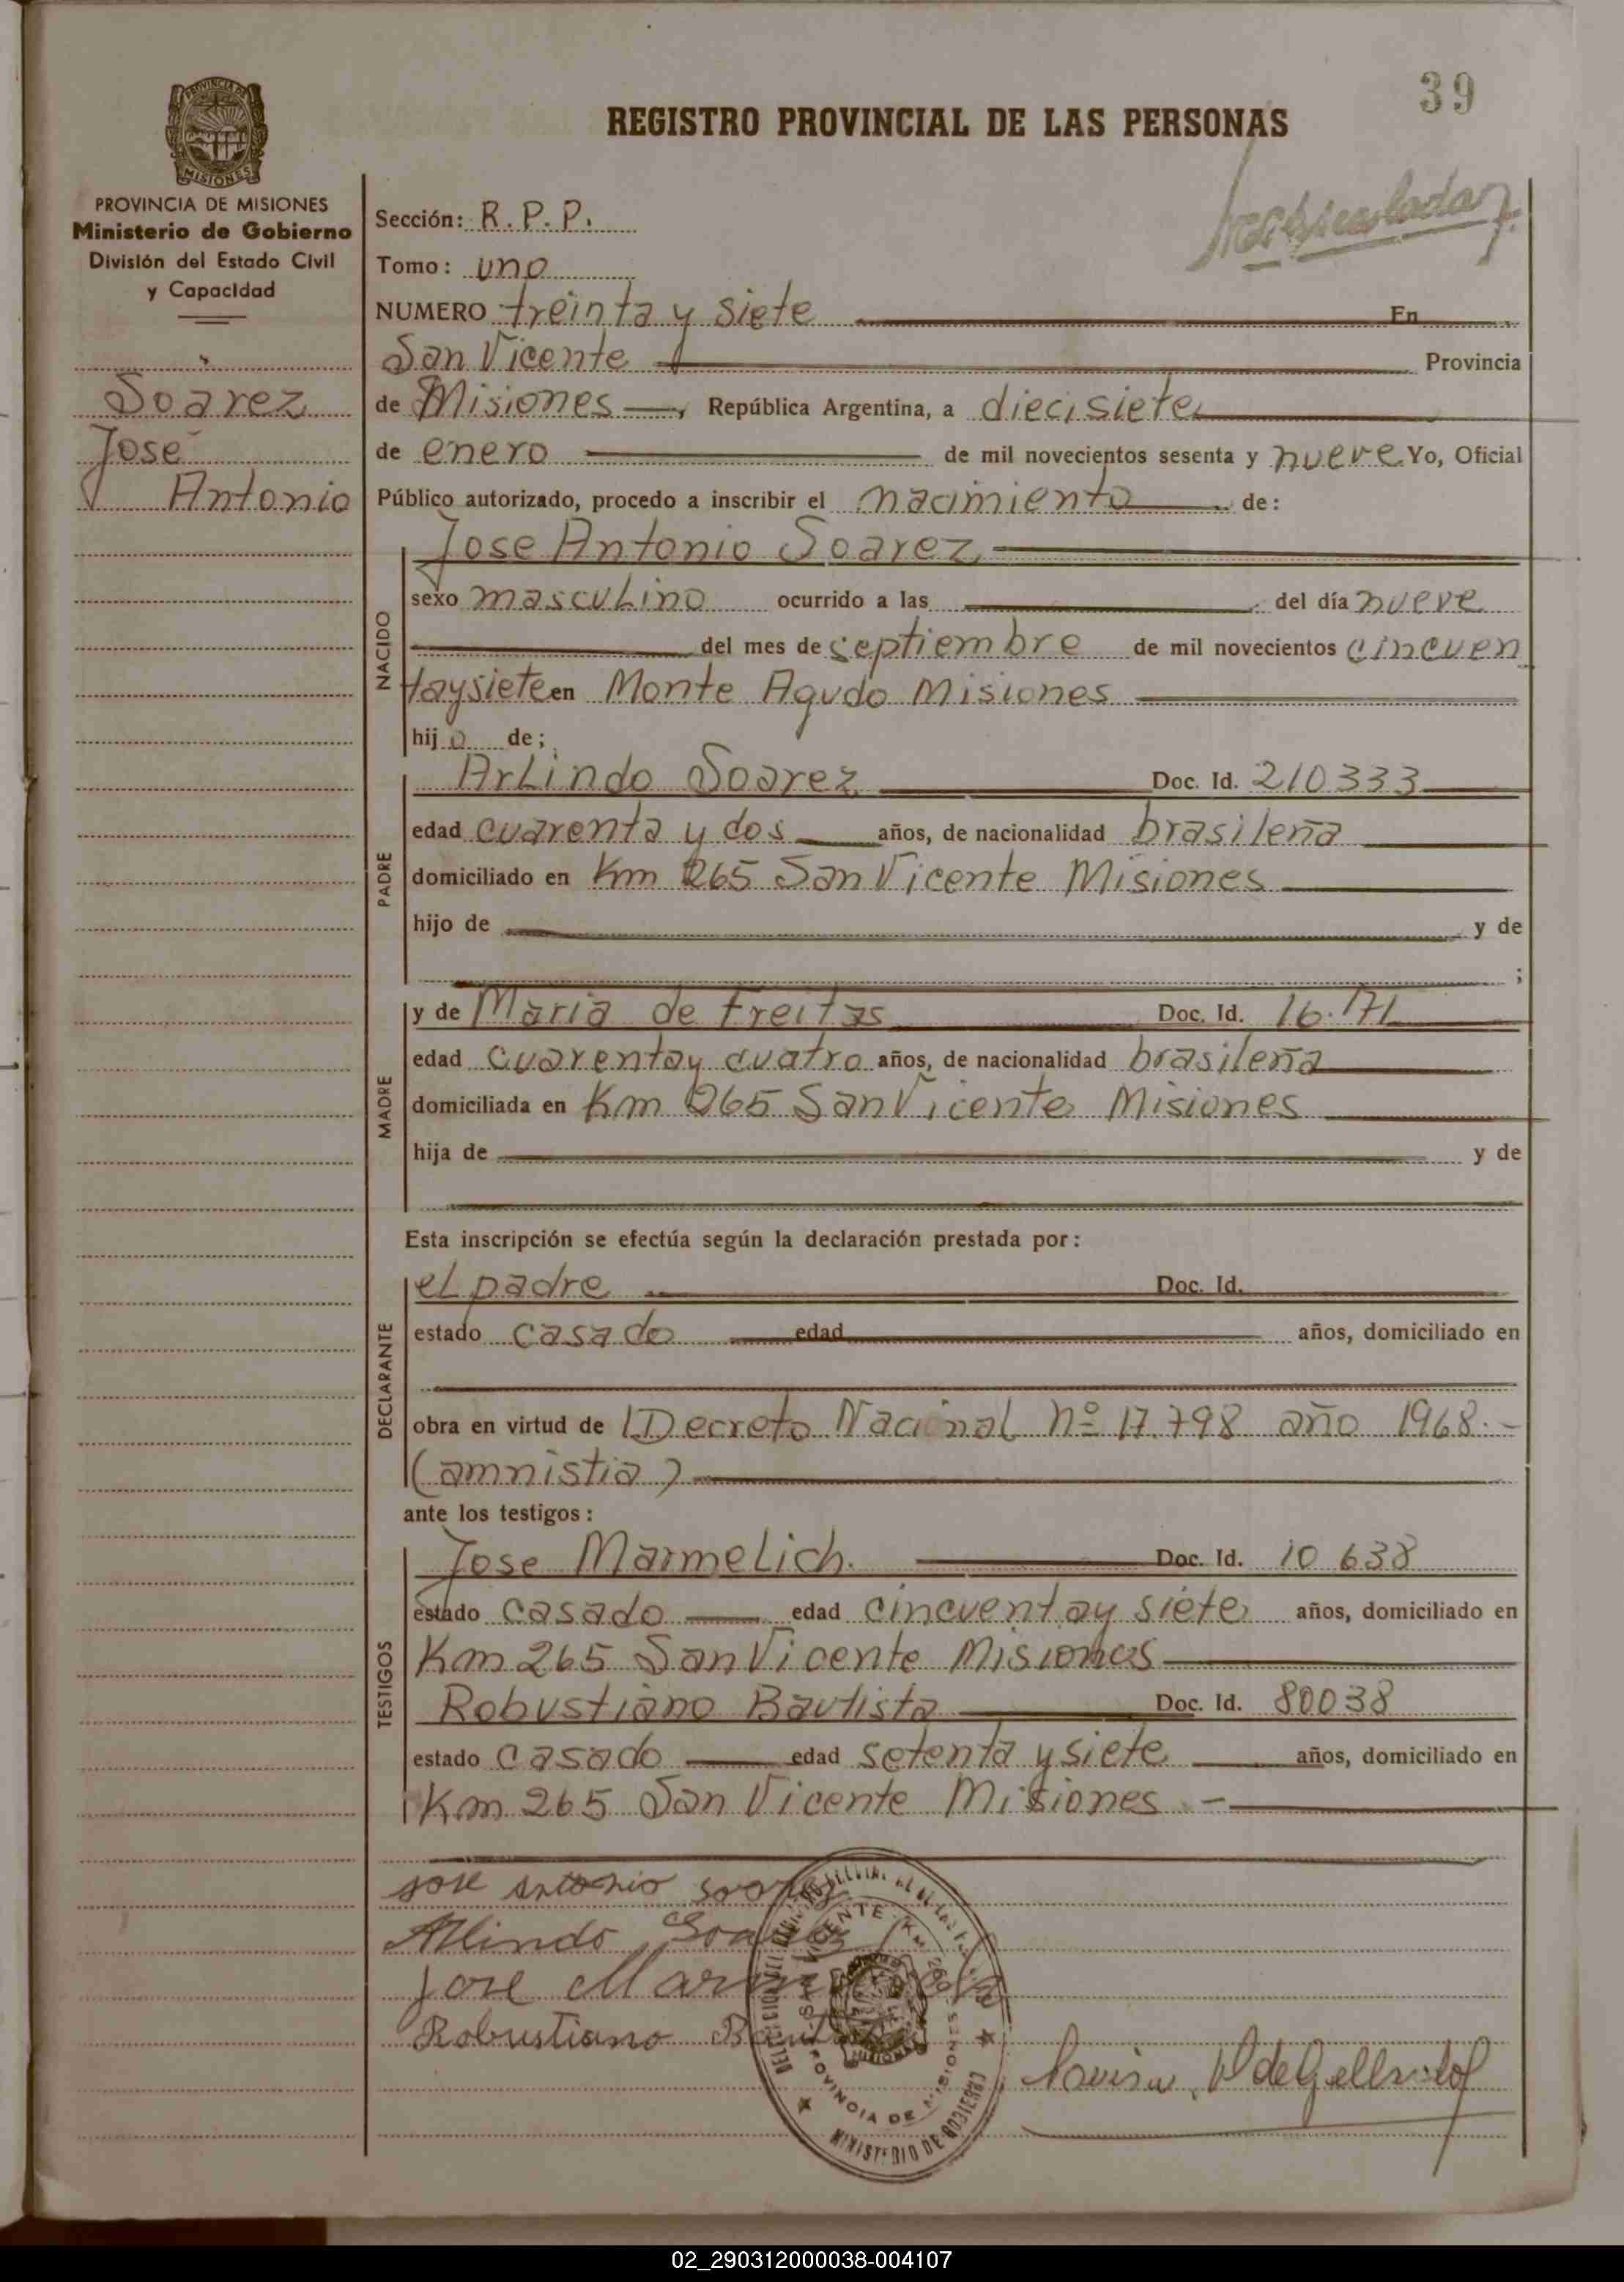 39
REGISTRO PROVINCIAL DE LAS PERSONAS
PROVINCIA DE
MISIONES
PROVINCIA DE MISIONES
Ministerio de Gobierno
División del Estado Civil
y Capacidad
Soarez
José
Antonio
Sección: R.P.P.
Tomo: uno
NUMERO treinta y siete En
San Vicente Provincia
de Misiones, República Argentina, a diecisiete
de enero de mil novecientos sesenta y nueve Yo, Oficial
Público autorizado, procedo a inscribir el nacimiento de:
NACIDO
Jose Antonio Soarez
sexo masculino ocurrido a las del día nueve
del mes de septiembre de mil novecientos cincuen
taysiete en Monte Agudo Misiones
hijo de;
PADRE
Arlindo Soarez Doc. Id. 210333
edad cuarenta y dos años, de nacionalidad brasileña
domiciliado en Km 265 San Vicente Misiones
hijo de y de
;
MADRE
y de Maria de Freitas Doc. Id. 16.171
edad cuarentay cuatro años, de nacionalidad brasileña
domiciliada en Km 265 San Vicente Misiones
hija de y de
Esta inscripción se efectúa según la declaración prestada por:
DECLARANTE
el padre Doc. Id.
estado casado edad años, domiciliado en
obra en virtud de Decreto Nacional nº 17.798 año 1968.-
(amnistia)
ante los testigos:
TESTIGOS
Jose Marmelich. Doc. Id. 10 638
estado casado edad cincuentay siete años, domiciliado en
Km 265 San Vicente Misiones
Robustiano Bautista Doc. Id. 80038
estado casado edad setenta y siete años, domiciliado en
Km 265 San Vicente Misiones -
jose antonio soarez
Arlindo Soarez
Jose
Robustiano
SAN VICENTE Km 265
PROVINCIA DE MISIONES
MINISTERIO DE GOBIERNO
02_290312000038-004107